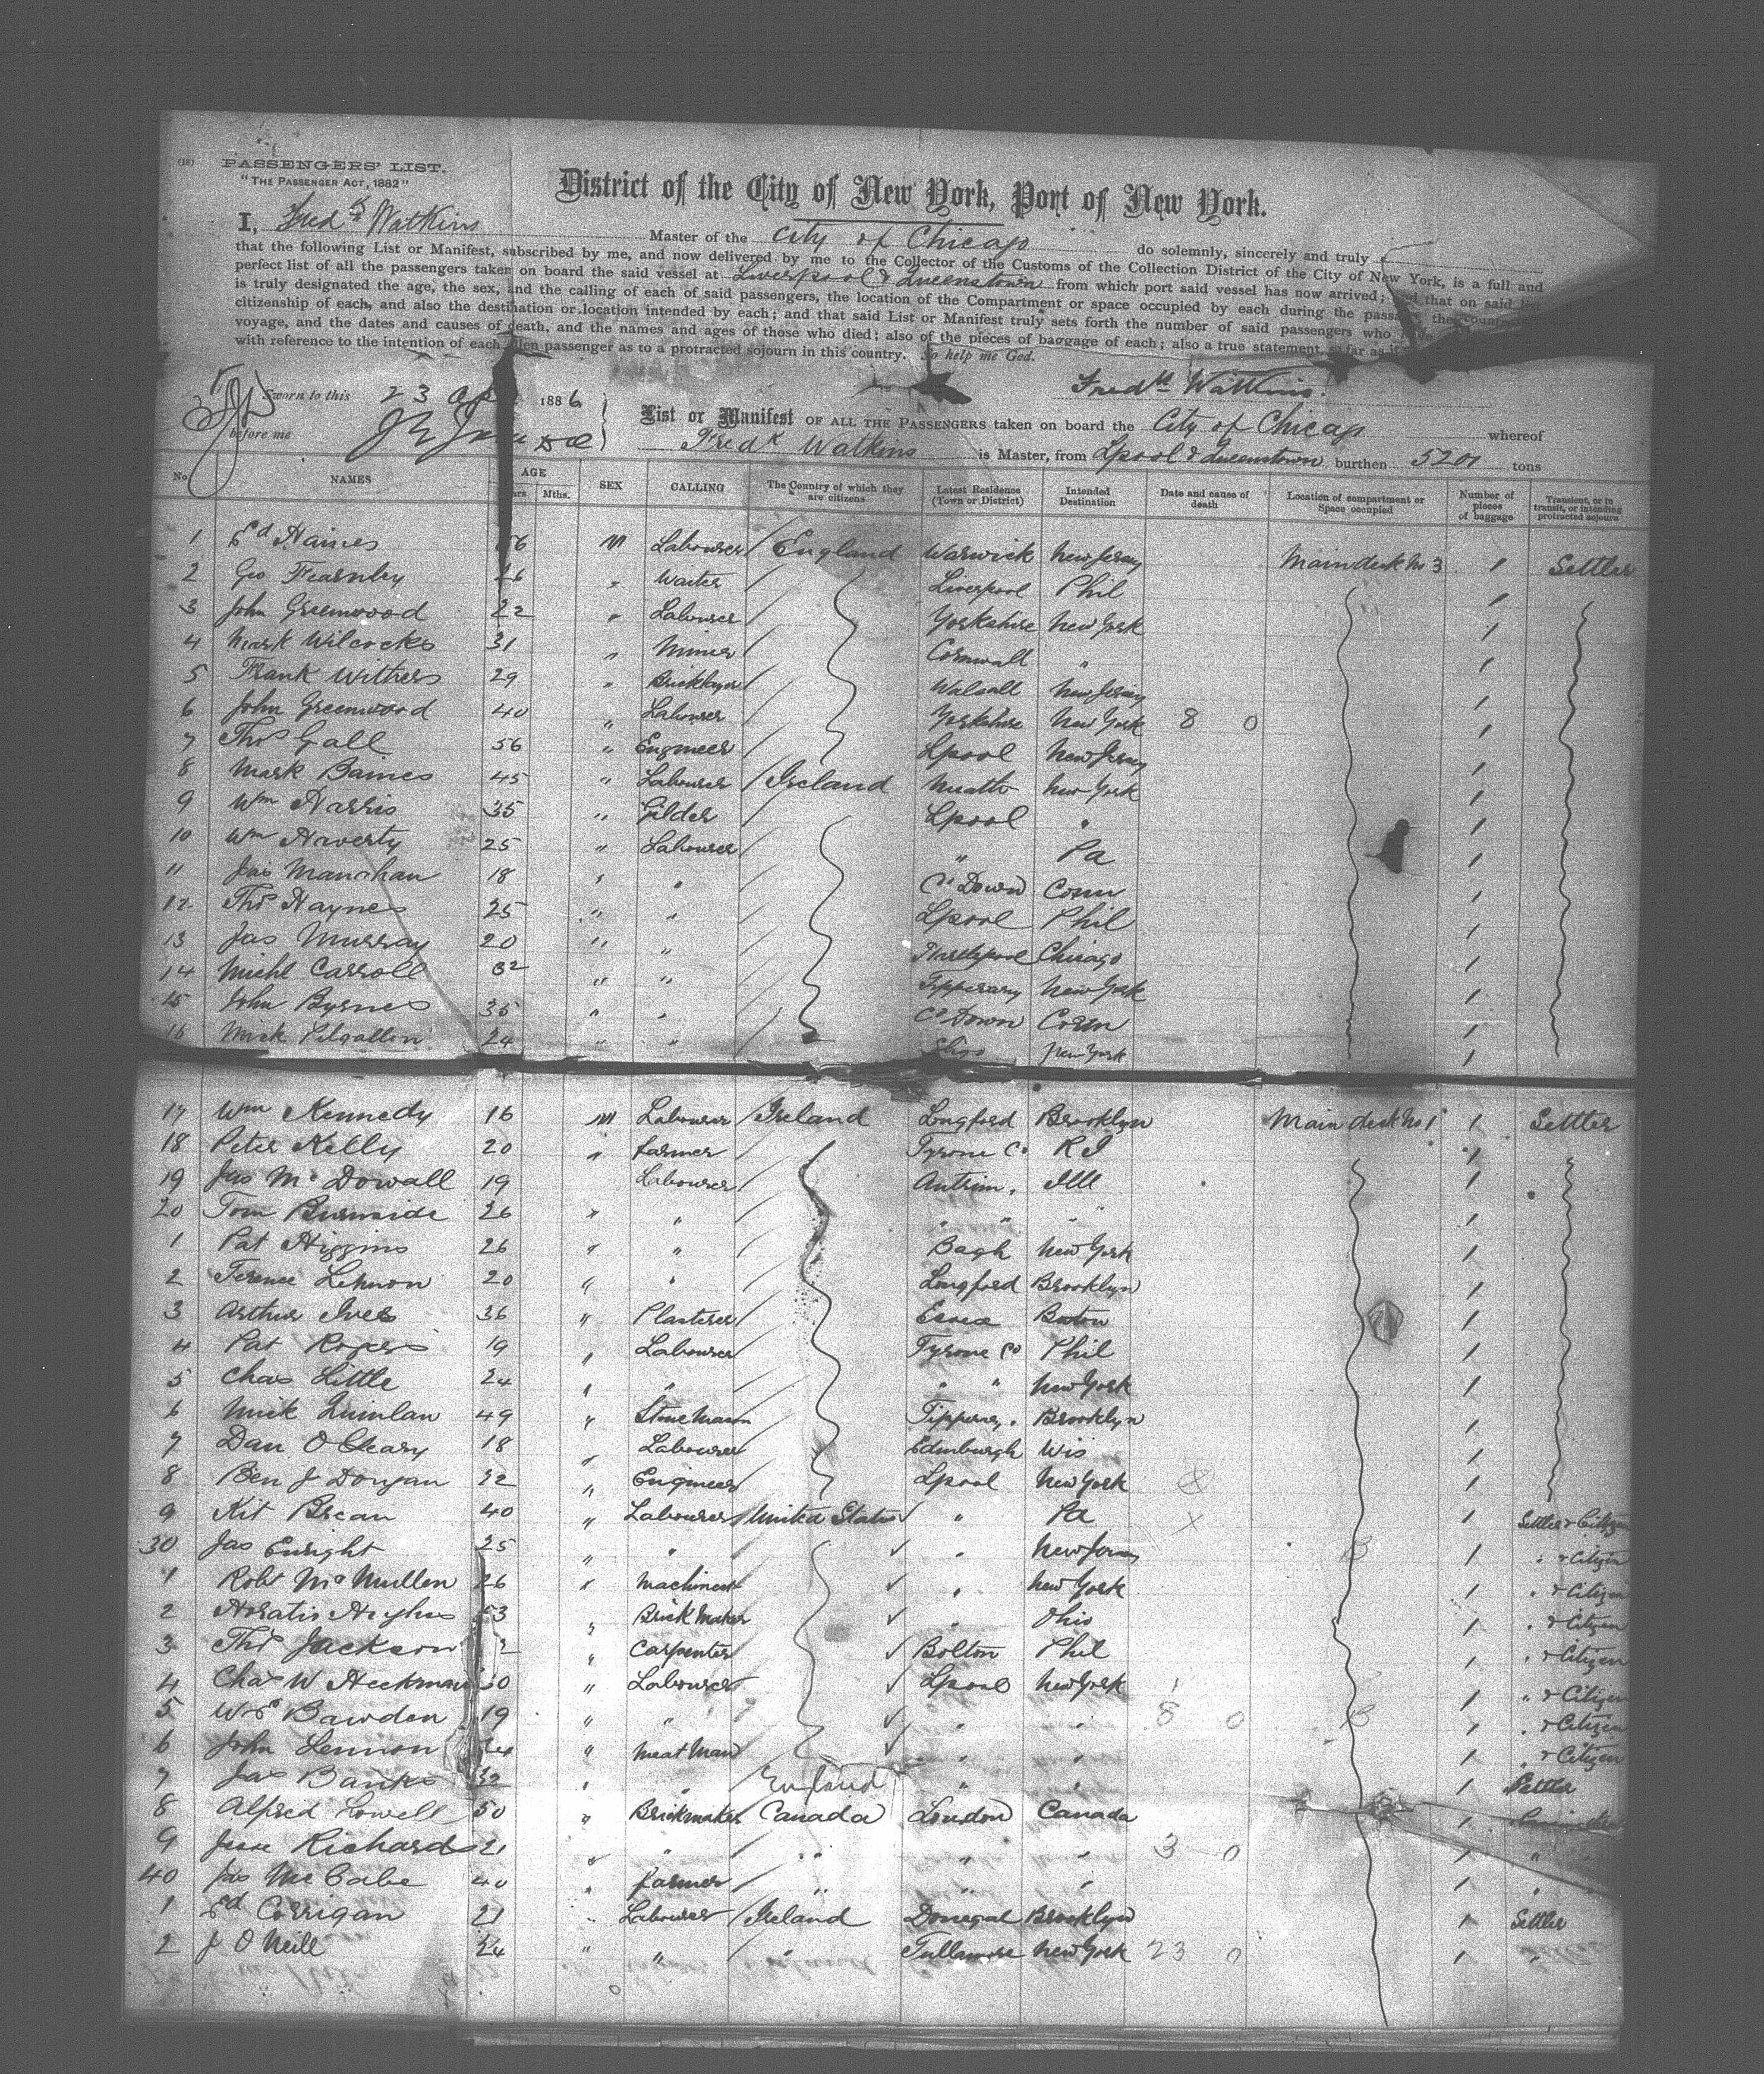 (18)
PASSENGERS' LIST.
"THE PASSENGER ACT, 1882"
District of the City of New York, Port of New York.
I, Fredk Watkins Master of the City of Chicago do solemnly, sincerely and truly
that the following List or Manifest, subscribed by me, and now delivered by me to the Collector of the Customs of the Collection District of the City of New York, is a full and
perfect list of all the passengers taken on board the said vessel at Liverpool & Queenstown from which port said vessel has now arrived; that on said
is truly designated the age, the sex, and the calling of each of said passengers, the location of the Compartment or space occupied by each during the passage the country
citizenship of each, and also the destination or location intended by each; and that said List or Manifest truly sets forth the number of said passengers who
voyage, and the dates and causes of death, and the names and ages of those who died; also of the pieces of baggage of each; also a true statement, so far as it
with reference to the intention of each alien passenger as to a protracted sojourn in this country. So help me God.
Sworn to this 23 Ap 1886
before me
Fredk Watkins.
List or Manifest OF ALL THE PASSENGERS taken on board the City of Chicago whereof
Fredk Watkins is Master, from Lpool & Queenstown burthen 5201 tons
No NAMES AGE Mths. SEX CALLING The Country of which they are citizens Latest Residence (Town or District) Intended Destination Date and cause of death Location of compartment or Space occupied Number of pieces of baggage Transient, or in transit, or intending protracted sojourn
1 Ed Haines 6 M Labourer England Warwick New Jersey Main deck No 3 1 Settler
2 Geo Fearnley 26 " Waiter Liverpool Phil 1
3 John Greenwood 22 " Labourer Yorkshire New York 1
4 Mark Wilcocks 31 " Miner Cornwall " 1
5 Frank Withers 29 " Bricklayer Walsall New Jersey 1
6 John Greenwood 40 " Labourer Yorkshire New York 8 0 1
7 Thos Gall 56 " Engineer Lpool New Jersey 1
8 Mark Baines 45 " Labourer Ireland Meath New York 1
9 Wm Harris 35 " Gilder Lpool " 1
10 Wm Haverty 25 " Labourer " Pa 1
11 Jas Manahan 18 " " Co Down Conn 1
12 Thos Haynes 25 " " Lpool Phil 1
13 Jas Murray 20 " " Hartlepool Chicago 1
14 Michl Carroll 32 " " Tipperary New York 1
15 John Byrnes 35 " " Co Down Conn 1
16 Mick Pilgallon 24 " " Sligo New York 1
17 Wm Kennedy 16 M Labourer Ireland Longford Brooklyn Main deck No 1 1 Settler
18 Peter Kelly 20 " Farmer Tyrone Co R I 1
19 Jas McDowall 19 Labourer Antrim. Ill 1
20 Tom Burnside 26 " " " " " " 1
1 Pat Higgins 26 " " New York 1
2 Terence Lennon 20 " " Longford Brooklyn 1
3 Arthur Ives 36 " Plasterer Essex Boston 1
4 Pat Rogers 19 " Labourer Tyrone Co Phil 1
5 Chas Little 24 " " " " New York 1
6 Mick Quinlan 49 " Stone Mason Tipperary. Brooklyn 1
7 Dan O'Cleary 18 " Labourer Edinburgh Wis 1
8 Ben J Dongan 22 " Engineer Lpool New York 1
9 Kit Brean 40 " Labourer United States " Pa 1 Settler & Citizen
30 Jas Enright 25 " " " New Jersey 1 " & Citizen
1 Robt McMullen 26 " Machinist " New York 1 " & Citizen
2 Horatio Hughes 53 " Brick Maker " Ohio 1 " & Citizen
3 Thos Jackson 2 " Carpenter Bolton Phil 1 " & Citizen
4 Chas W Heckman 30 " Labourer Lpool New York 1 " & Citizen
5 Wm Bawden 19 " " " " 8 0 1 " & Citizen
6 John Lennon 24 " Meat Man " " 1 " & Citizen
7 Jas Banks 32 " " England " " 1 Settler
8 Alfred Lowell 50 " Brickmaker Canada London Canada 1
9 Jesse Richards 21 " " " " " 3 0 1 "
40 Jas McCabe 40 " Farmer " " " 1 "
1 Ed Corrigan 21 " Labourer Ireland Donegal Brooklyn 1 Settler
2 J O'Neill 24 " " " Tullamore New York 23 0 1 "